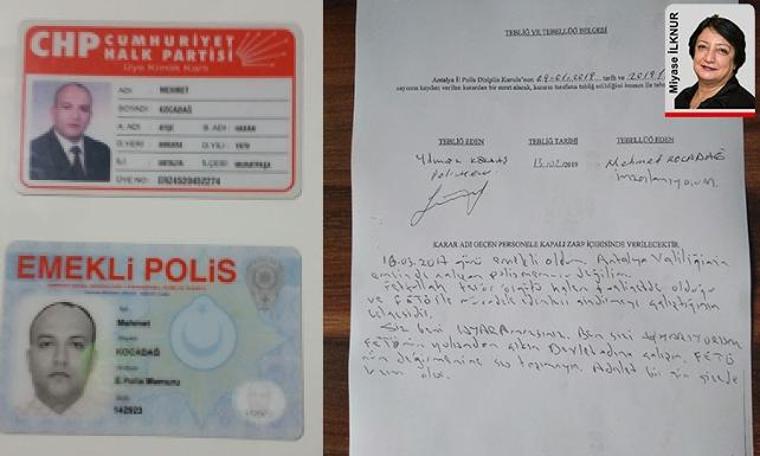 CHP CUMHURİYET
HALK PARTİSİ
Üye Kimlik Kartı
ADI MEHMET
SOYADI KOCADAĞ
A. ADI B. ADI HASAN
D.YERİ D.YILI
İLİ ANTALYA İLÇESİ MURATPAŞA
ÜYE NO:
EMEKLİ POLİS
Mehmet
KOCADAĞ
E.Polis Memuru
142923
TEBLİĞ VE TEBELLÜĞ BELGESİ
Antalya İl Polis Disiplin Kurulu'nun 09.01.2019 tarih ve
sayısına kayden verilen karardan bir suret alarak, kararın tarafıma tebliğ edildiğini
TEBLİĞ EDEN TEBLİĞ TARİHİ TEBELLÜĞ EDEN
Polis Mem. 15/02/2019 Mehmet KOCADAĞ
imzalamıyorum.
KARAR ADI GEÇEN PERSONELE KAPALI ZARF İÇERİSİNDE VERİLECEKTİR.
günü emekli oldum. Antalya Valiliğinin
emrinde çalışan polis memuru değilim.
Fetullah terör örgütü halen faaliyette olduğu
ve FETÖ ile mücadele edenleri sindirmeye çalıştığının
Siz beni UYARAmazsınız. Ben sizi UYARIYORUM
FETÖ'nün yolundan çıkın Devlet adına çalışın. FETÖ
nün değirmenine su taşımayın. Adalet bir gün size de
lazım olur.
Miyase İLKNUR